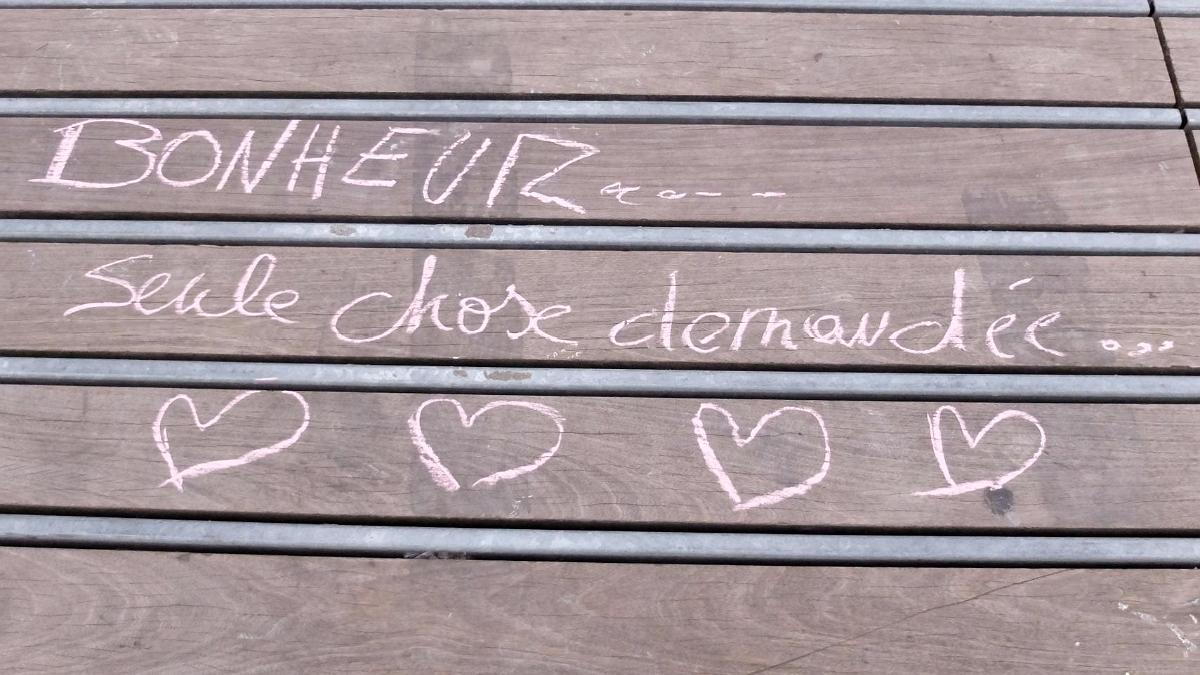 BONHEUR....
Seule chose demandée...